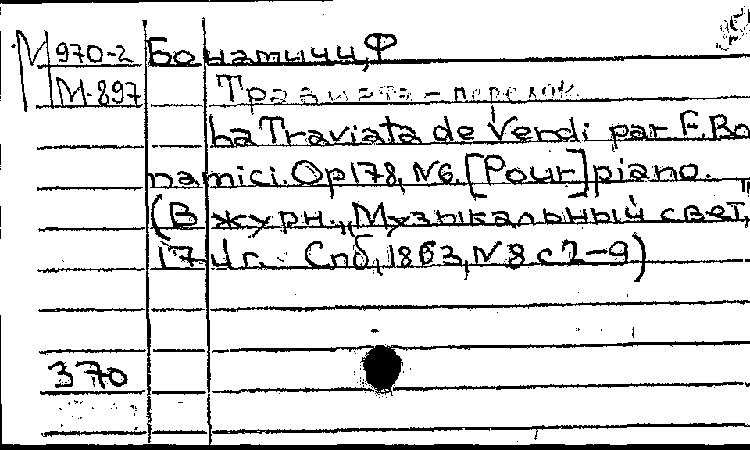 М 970-2 Бонатичи, Ф
М-897 Травиата – перелож.
La Traviata de Verdi par F. Bo
namici. Op 178, N6. [Pour] piano.
(В журн. „Музыкальный свет,"
17 Чг. Спб, 1863, N 8 с 2–9)
370